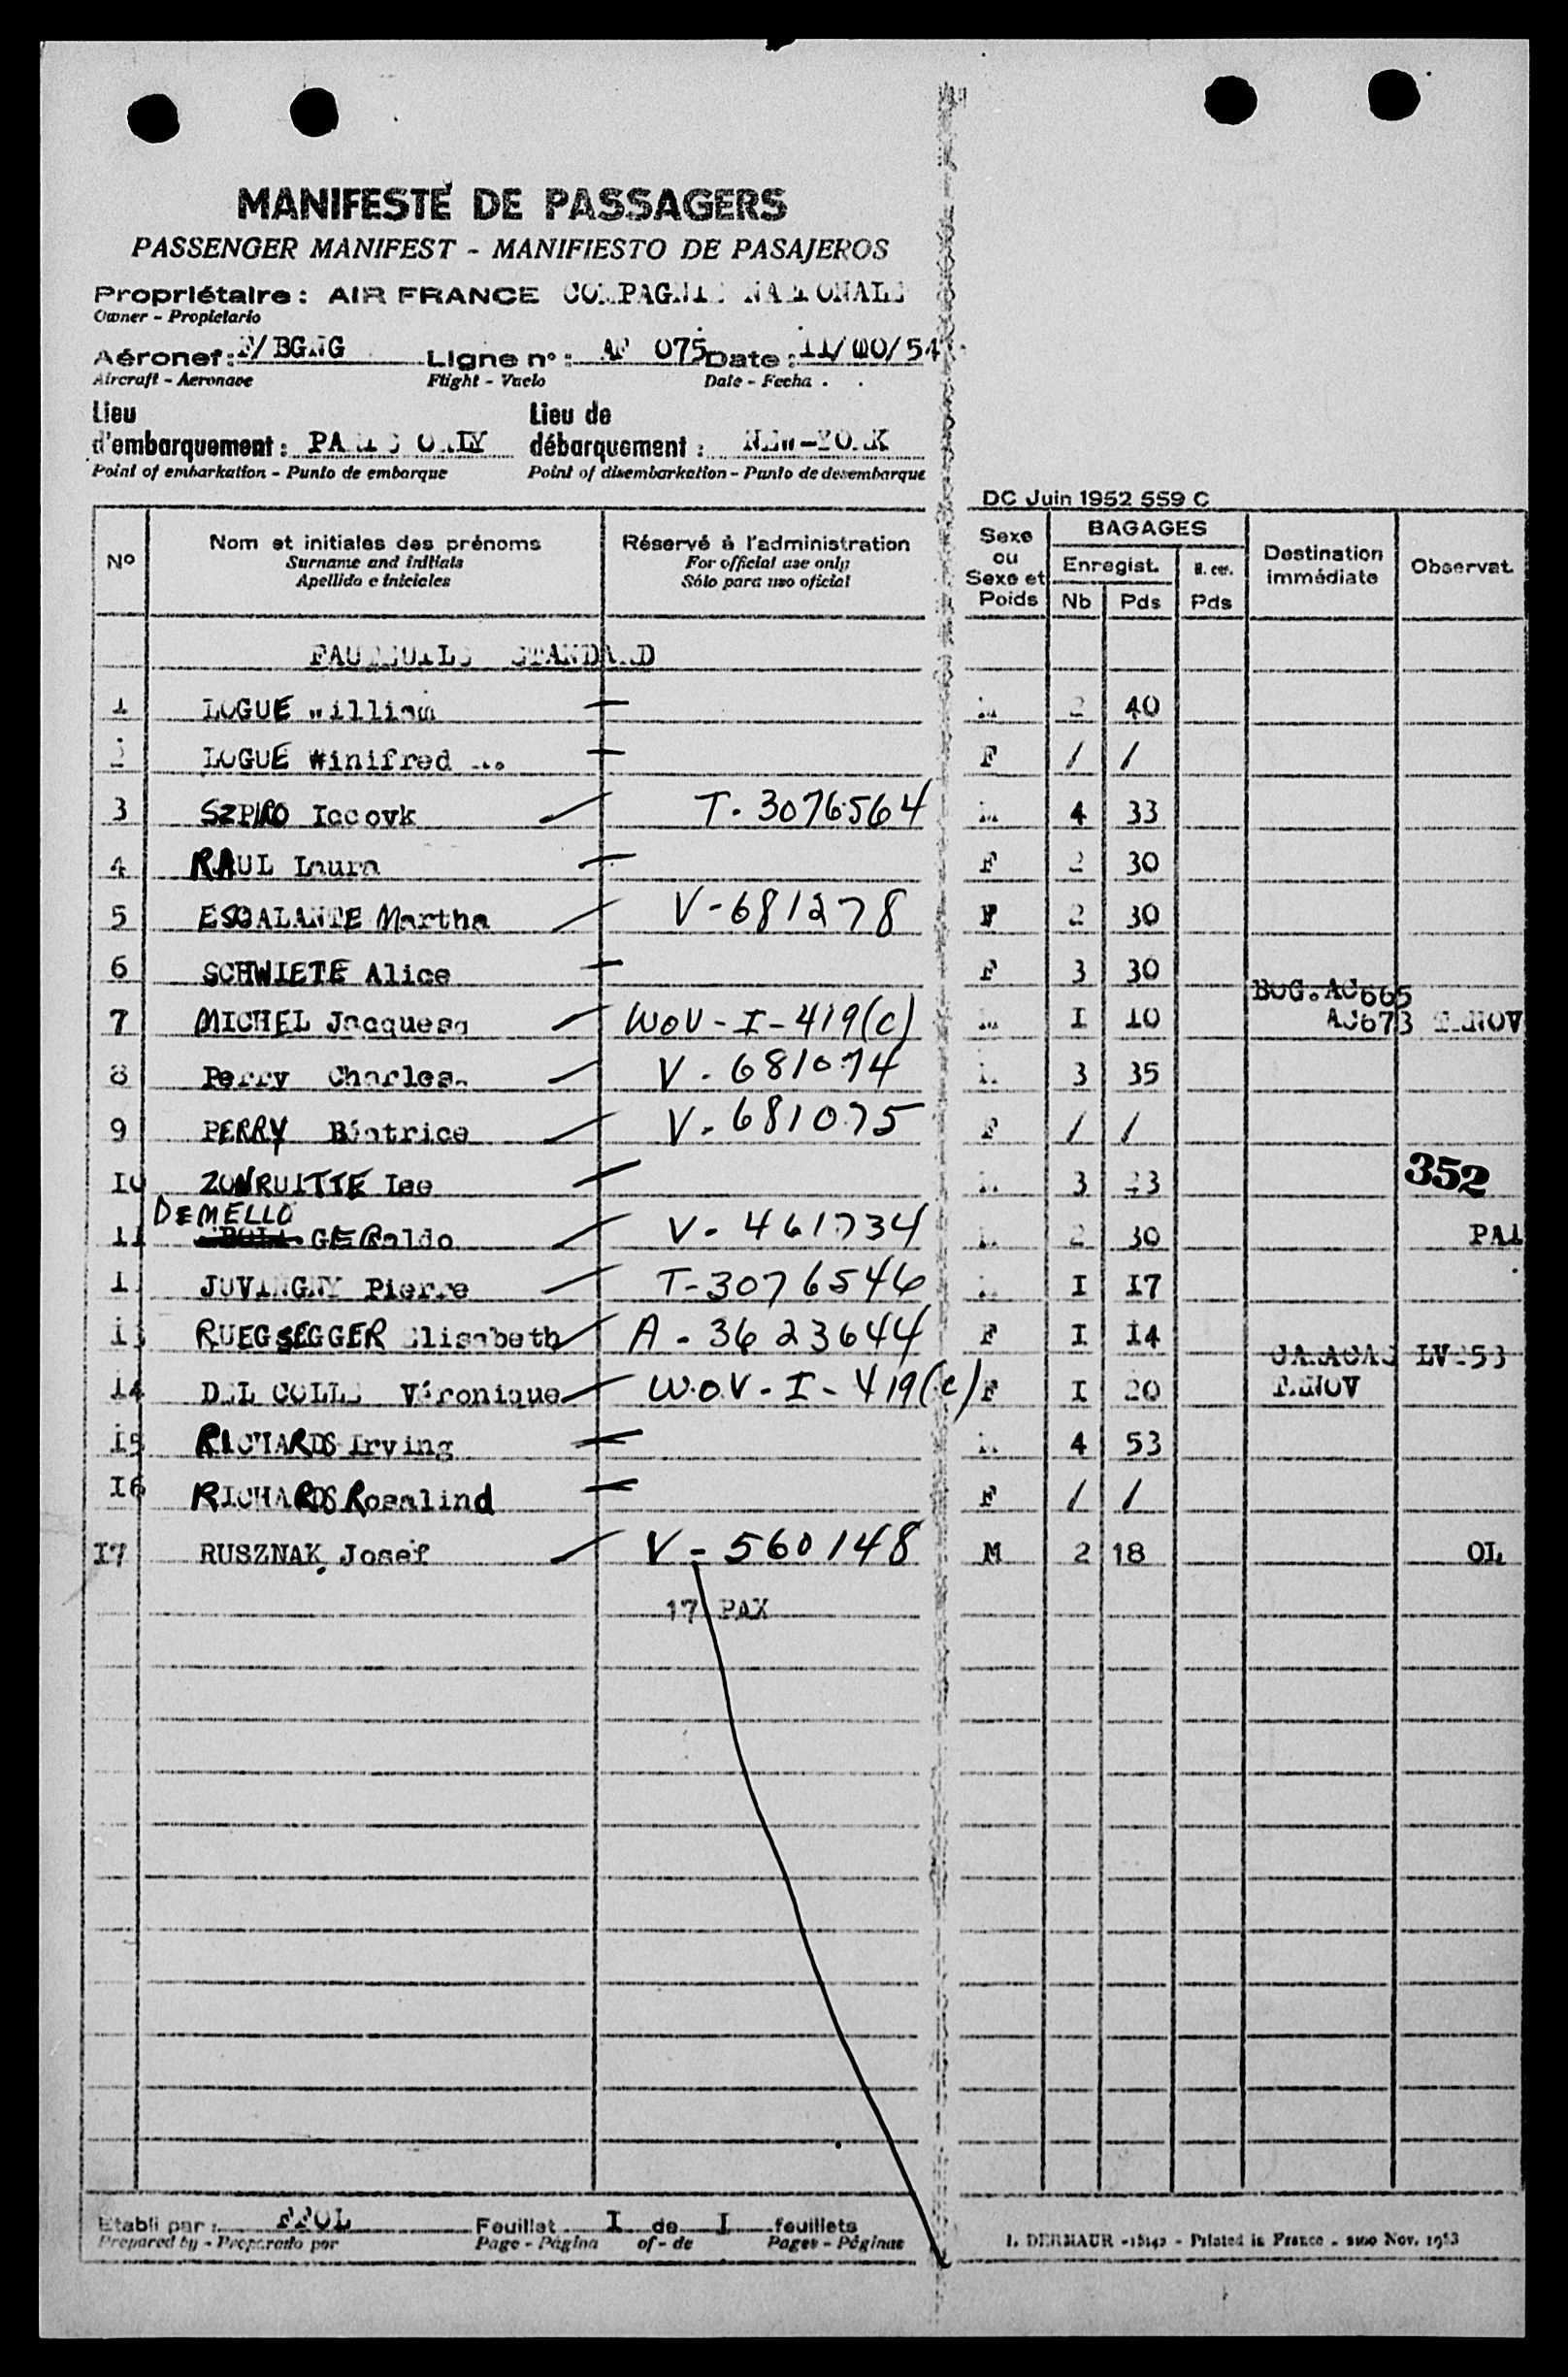 MANIFESTE DE PASSAGERS
PASSENGER MANIFEST - MANIFIESTO DE PASAJEROS
Propriétaire : AIR FRANCE COMPAGNIE NATIONALE
Owner - Propietario
Aéronef : F/BGNG Ligne n° : AF 075 Date : 11/ /54
Aircraft - Aeronave Flight - Vuelo Date - Fecha
Lieu Lieu de
d'embarquement : PARIS ORLY débarquement : NEW-YORK
Point of embarkation - Punto de embarque Point of disembarkation - Punto de desembarque
DC Juin 1952 559 C
N° Nom et initiales des prénoms Réservé à l'administration Sexe ou Sexe et Poids BAGAGES Destination immédiate Observat.
Surname and initials For official use only Enregist. Pds
Apellido e iniciales Sólo para uso oficial Nb Pds
FAUTEUILS STANDARD
1 LOGUE William — M 2 40
2 LOGUE Winifred — F / /
3 SZPIRO Iccovk T. 3076564 M 4 33
4 RAUL Laura — F 2 30
5 ESCALANTE Martha V-681278 F 2 30
6 SCHWIETE Alice — F 3 30
BOG. AC665
7 MICHEL Jacques WOV-I-419(C) M I 10 AC673
8 Perry Charles V. 681074 M 3 35
9 PERRY Béatrice V. 681075 F / /
352
10 ZONRUITTE — M 3
DEMELLO
11 GERaldo V- 461734 M 2 30 PAA
JUVINGNY Pierre T-3076546 M I 17
13 RUEGSEGGER Elisabeth A-3623644 F I 14
CARACAS LV253
14 DEL COLLE Véronique W.O.V-I-419(C) F I 20
15 RICHARDS Irving — M 4 53
16 RICHARDS Rosalind — F / /
17 RUSZNAK Josef V-560148 M 2 18 OL
17 PAX
Etabli par : Feuillet I de I feuillets
Prepared by - Preparado por Page - Página of - de Pages - Páginas
Printed in France - Nov. 1953